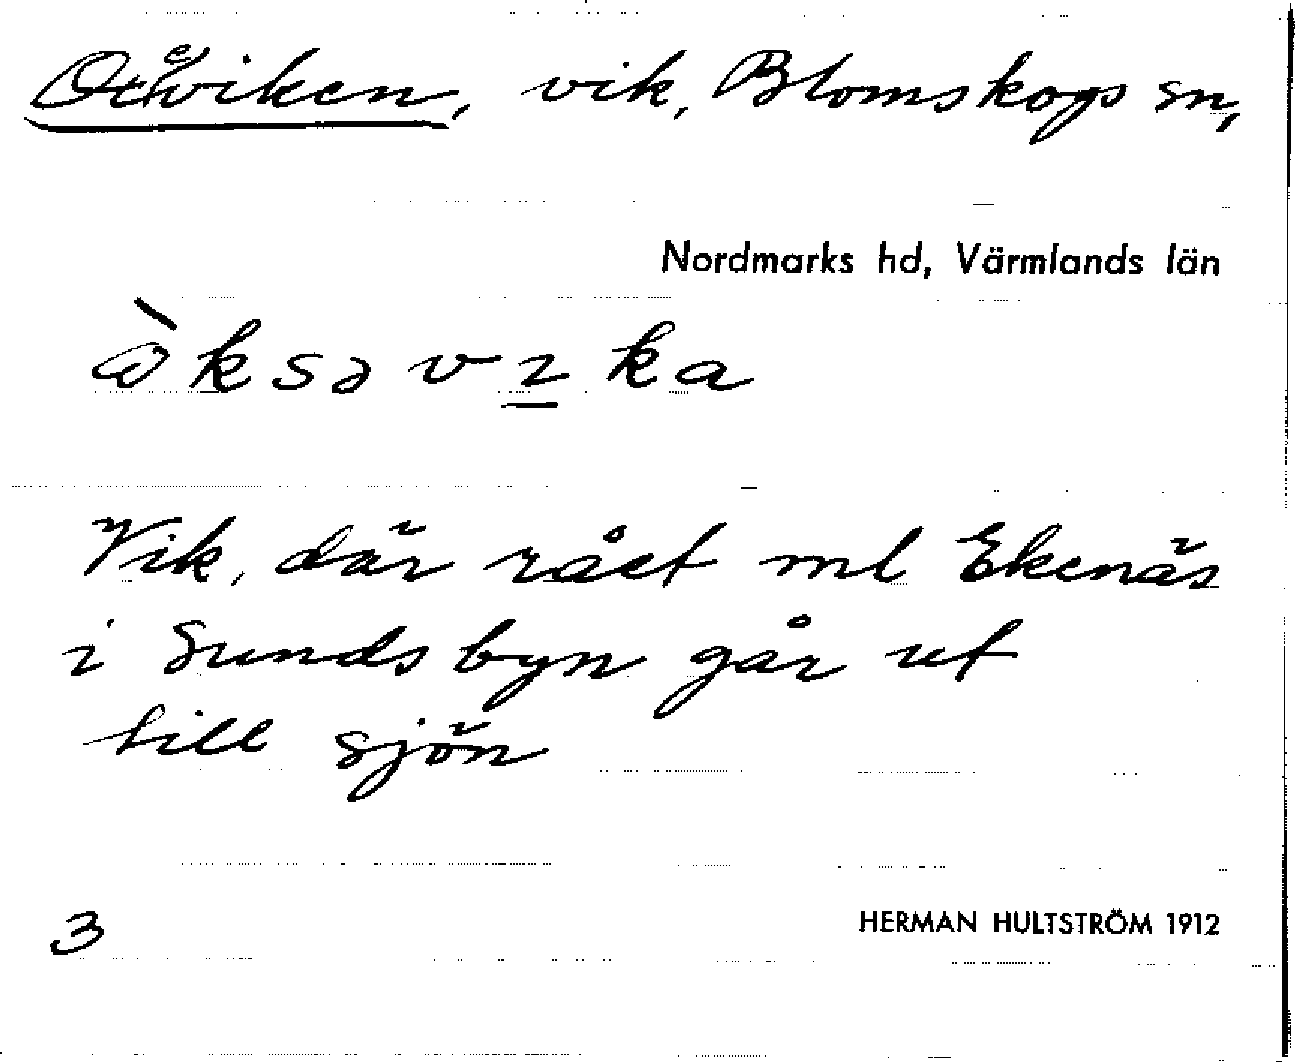 Oxeviken, vik, Blomskogs sn,
Nordmarks hd, Värmlands län
ɷ̀ksəvɪ̲ka
Vik, där rået ml Ekenäs
i Sundsbyn går ut
till sjön
3
HERMAN HULTSTRÖM 1912